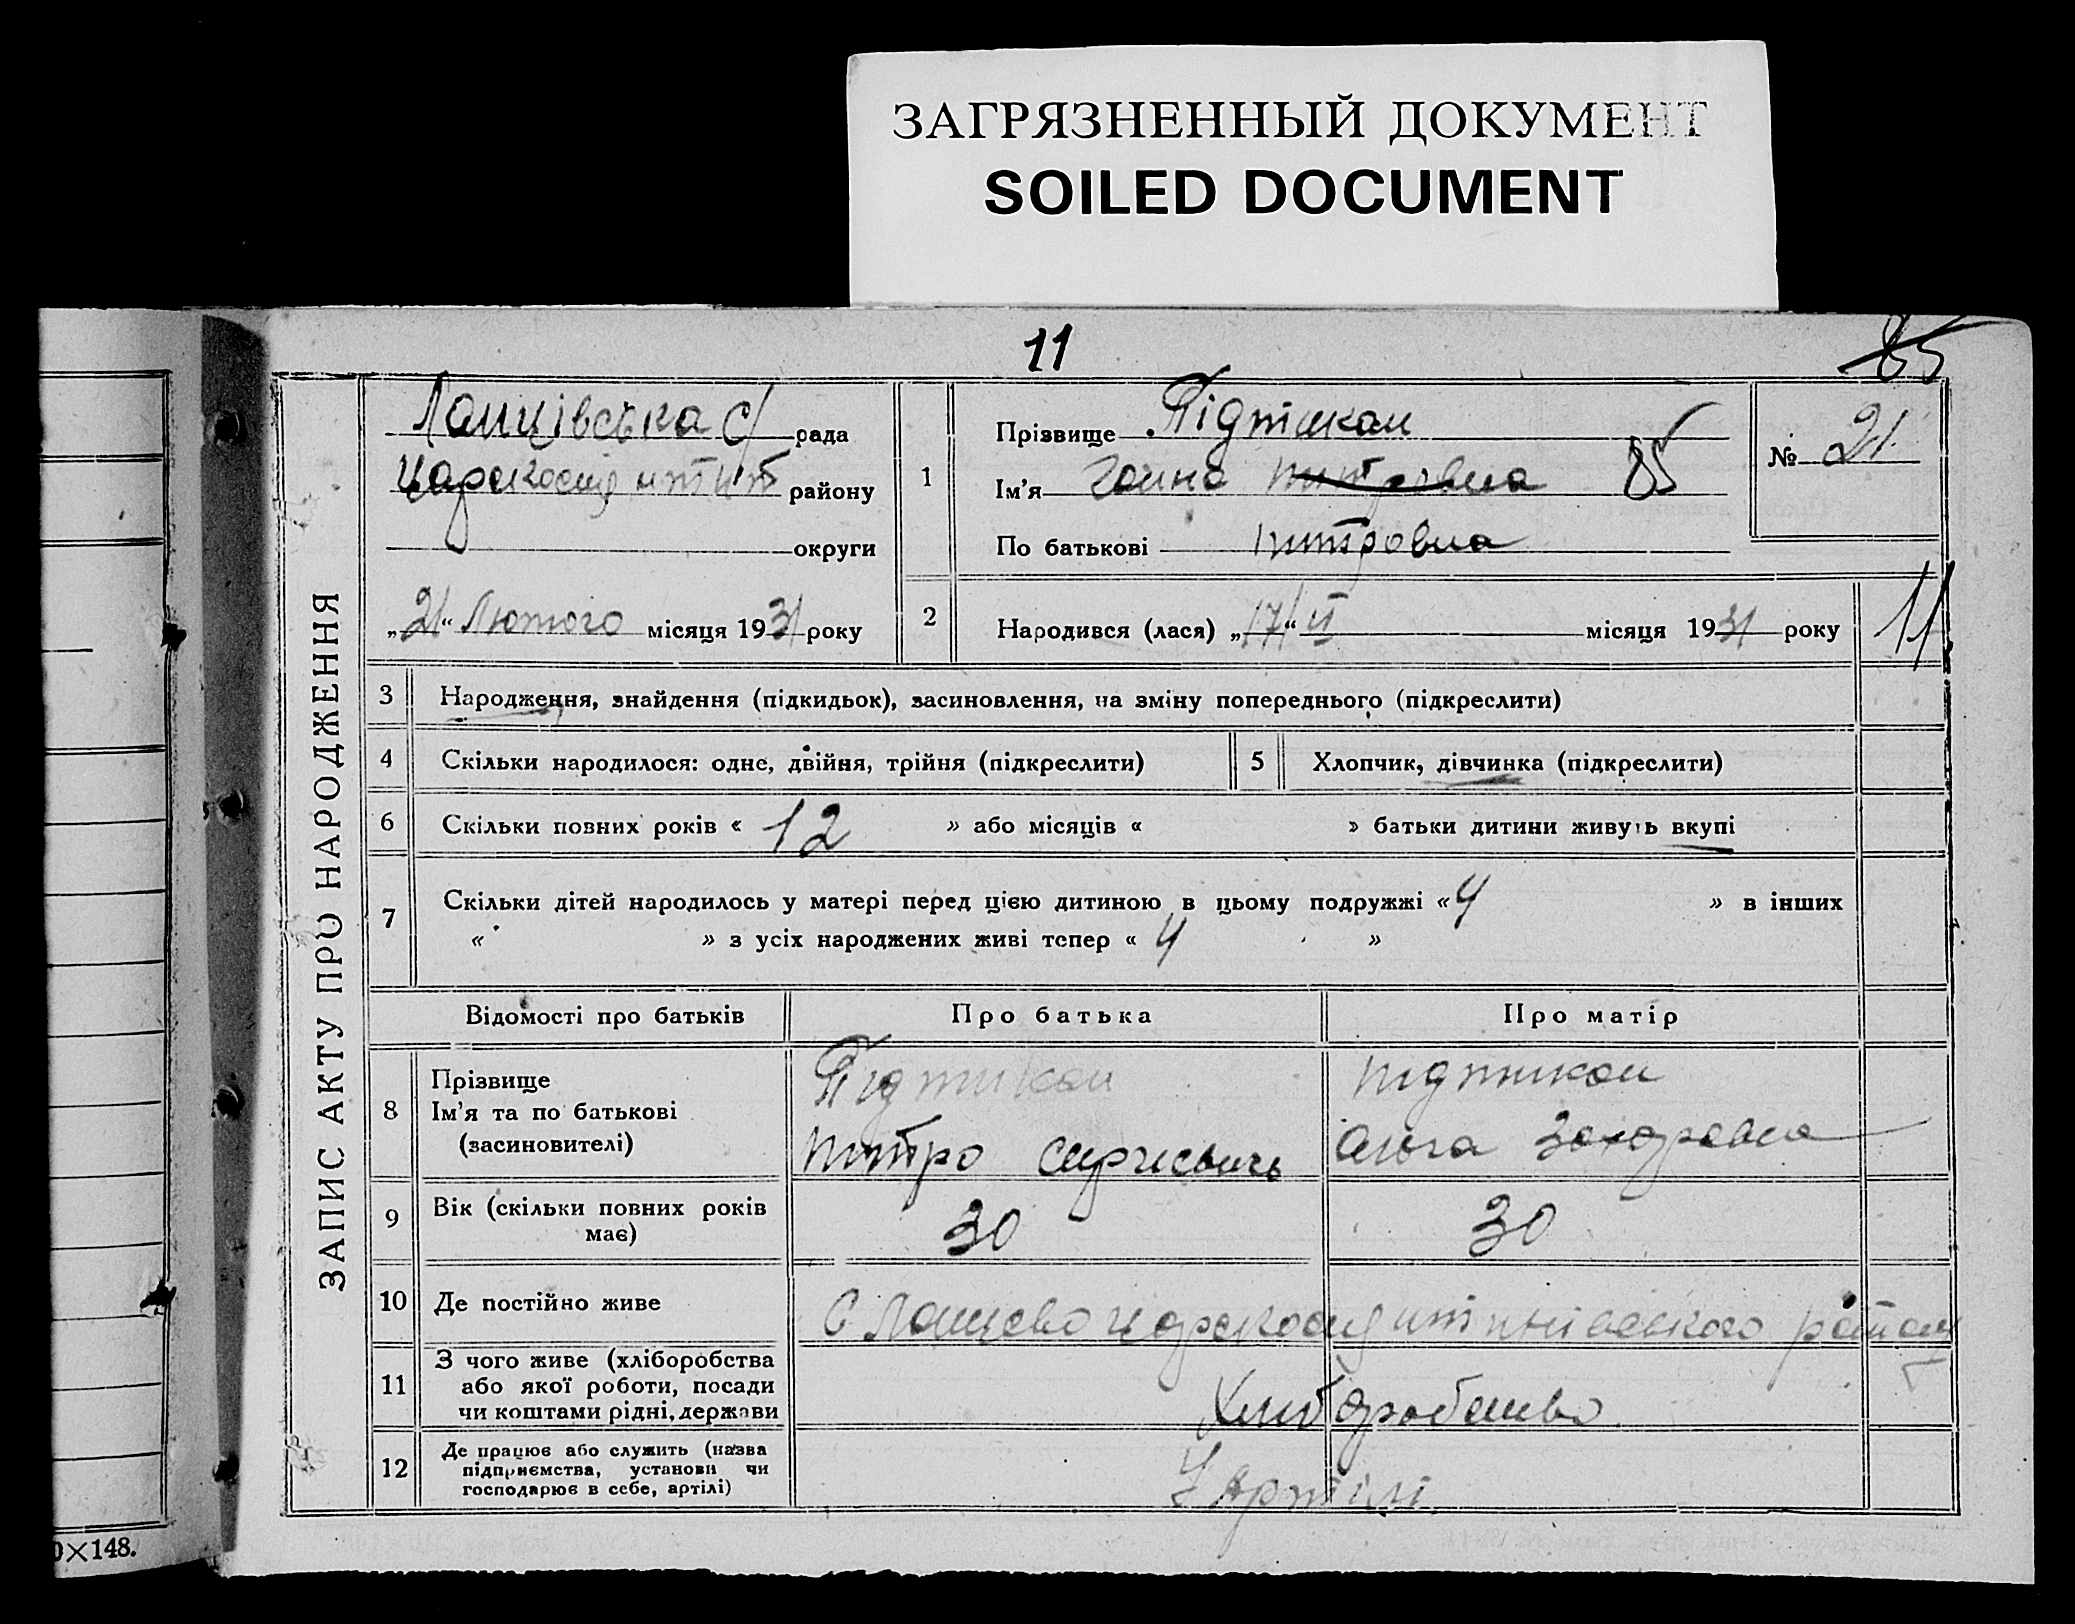 ЗАГРЯЗНЕННЫЙ ДОКУМЕНТ
SOILED DOCUMENT
11
85
ЗАПИС АКТУ ПРО НАРОДЖЕННЯ
рада
району
округи
„21“ Лютого місяця 1931 року
1
Прізвище Підтикан
Ім'я Ганна питровна 85
По батькові питровна
№ 21
2
Народився (лася) „17“ II місяця 1931 року
11
3 Народження, знайдення (підкидьок), засиновлення, на зміну попереднього (підкреслити)
4 Скільки народилося: одне, двійня, трійня (підкреслити)
5 Хлопчик, дівчинка (підкреслити)
6 Скільки повних років « 12 » або місяців « » батьки дитини живуть вкупі
7 Скільки дітей народилось у матері перед цією дитиною в цьому подружжі «4 » в інших
« » з усіх народжених живі тепер « 4 »
Відомості про батьків
Про батька
Про матір
8
Прізвище
Ім'я та по батькові
(засиновителі)
Підтикан
питро
підтикан
Ольга Захаровна
9
Вік (скільки повних років
має)
30
30
10 Де постійно живе
С
11
З чого живе (хліборобства
або якої роботи, посади
чи коштами рідні, держави
12
Де працює або служить (назва
підприємства, установи чи
господарює в себе, артілі)
У Артілі
0×148.